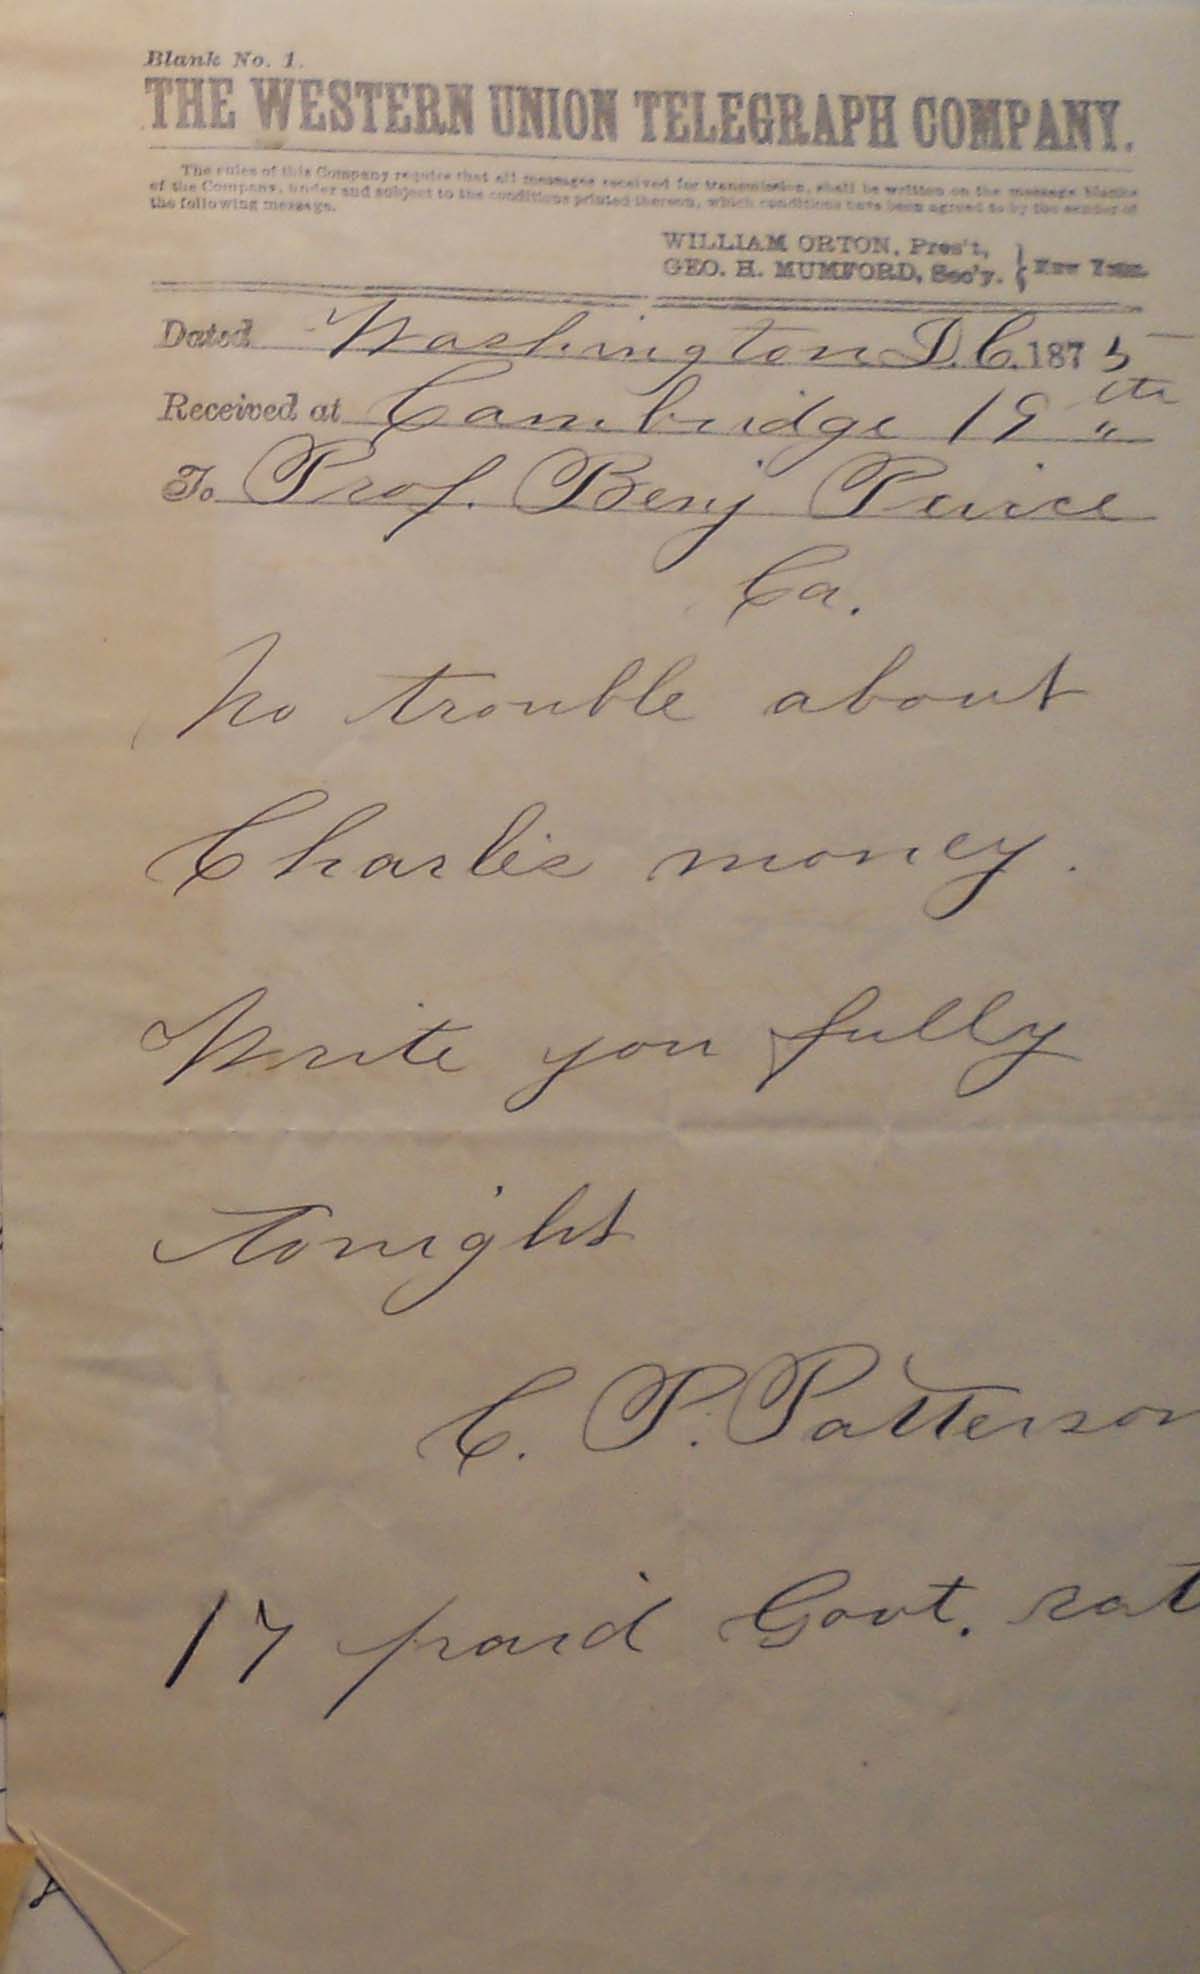 Blank No. 1.
THE WESTERN UNION TELEGRAPH COMPANY.
The rules of this Company require that all messages received for transmission, shall be written on the message blanks
of the Company, under and subject to the conditions printed thereon, which conditions have been agreed to by the sender of
the following message.
WILLIAM ORTON, Pres't,
GEO. H. MUMFORD, Sec'y. } New York.
Dated Washington D.C. 1875
Received at Cambridge 19 th "
To Prof. Benj Peirce
Ca.
No trouble about
Charlie money.
Write you fully
tonight
C. P. Patterson
17 paid Govt. rat